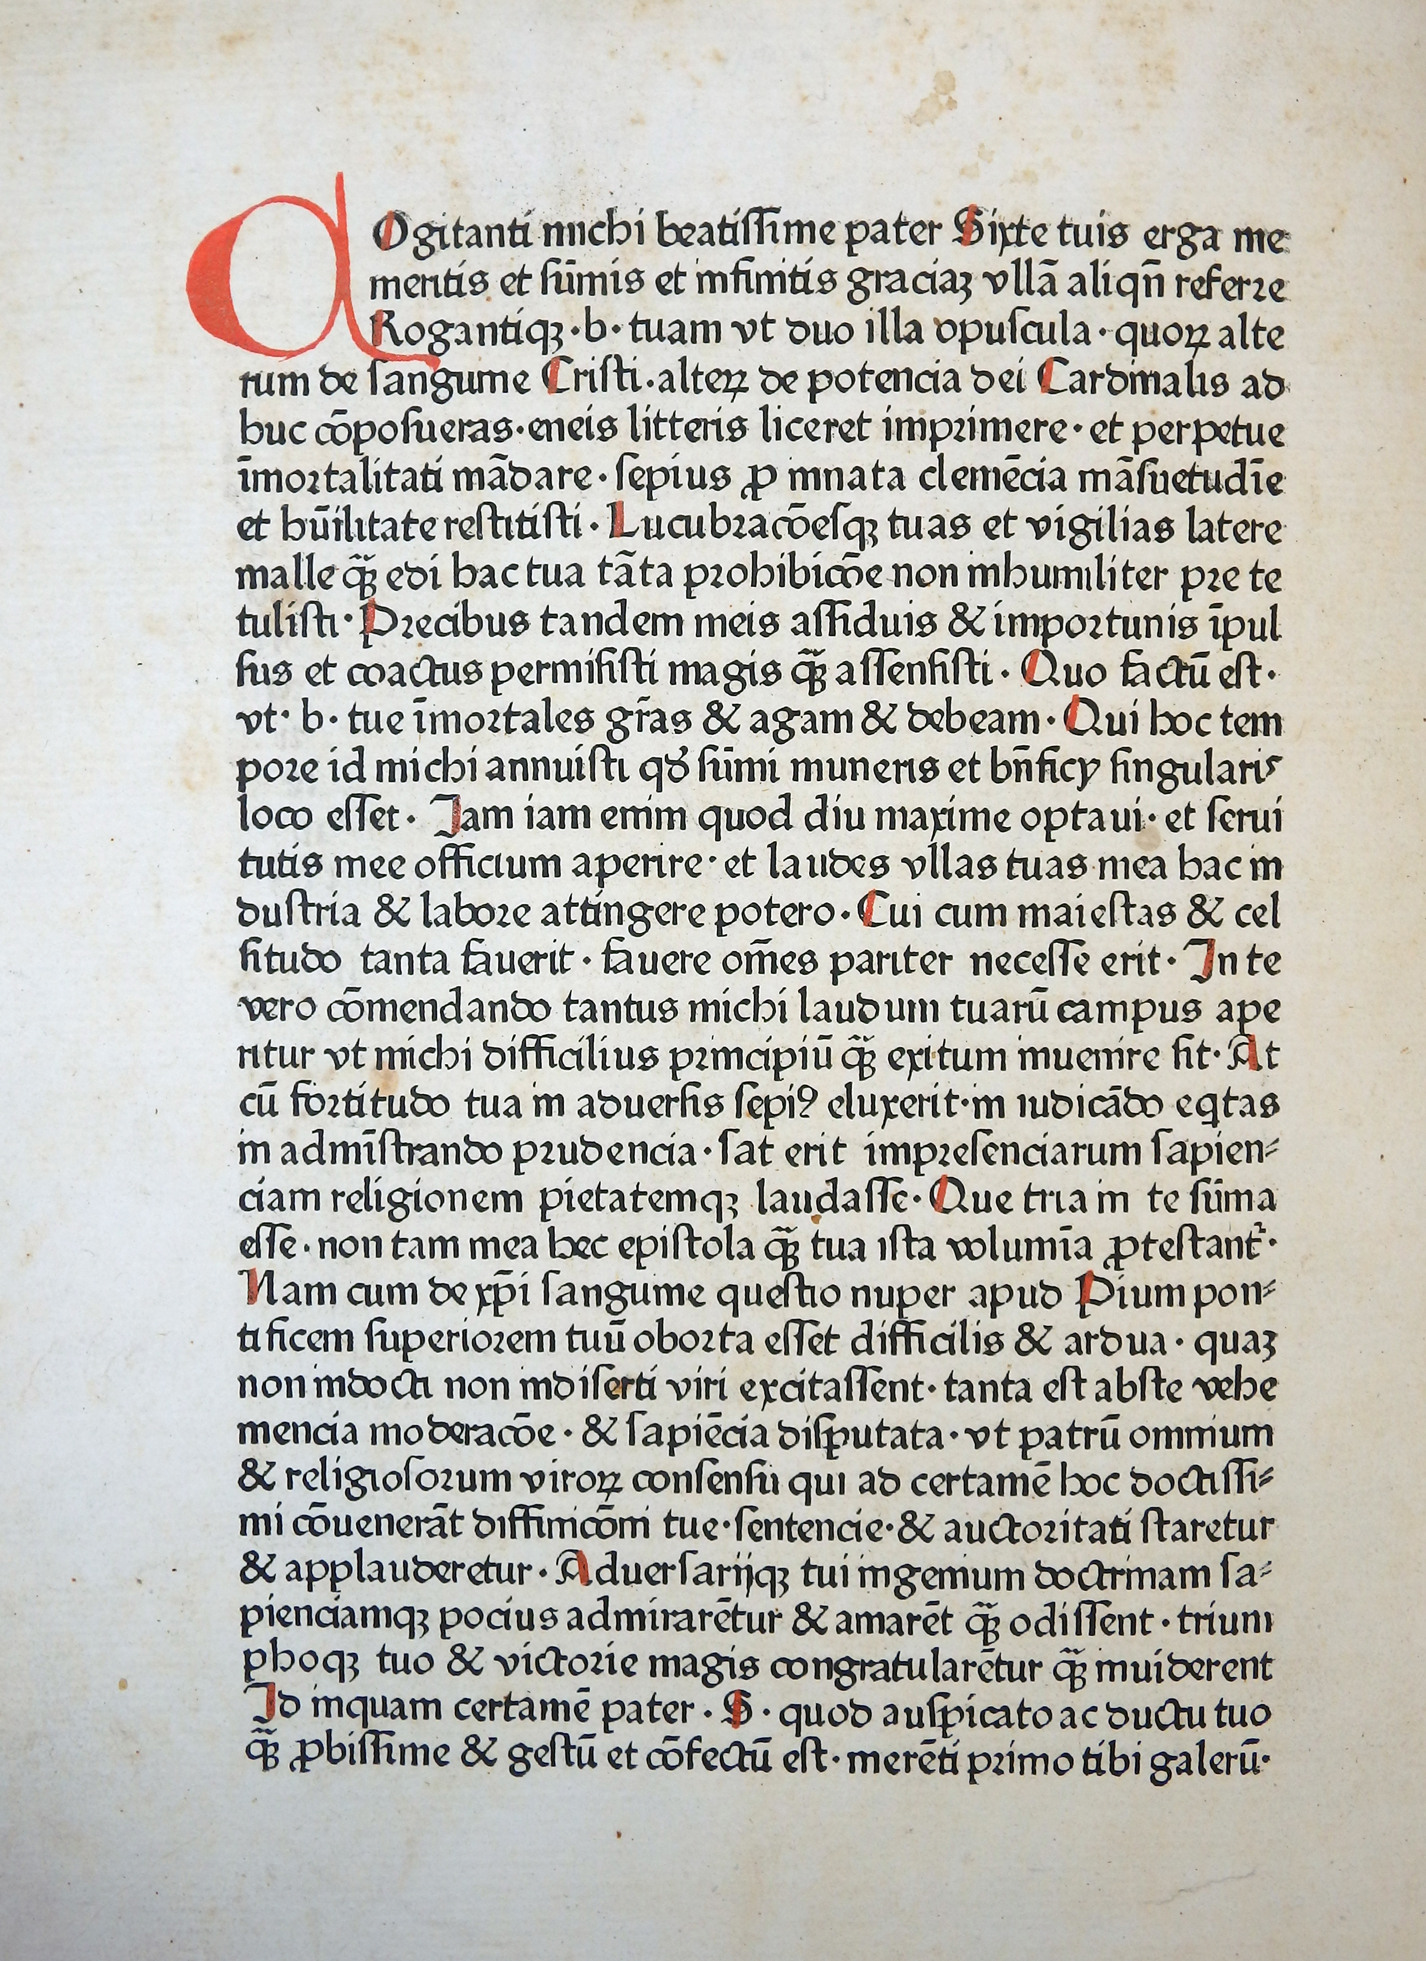 COgitanti michi beatiſſime pater Sixte tuis erga me
meritis et ſūmis et infinitis graciaꝫ vllā aliqn̄ referre
Rogantiqꝫ · b · tuam vt duo illa opuſcula · quoꝝ alte
rum de ſanguine Criſti · alteꝝ de potencia dei Cardinalis ad
huc cōpoſueras · eneis litteris liceret imprimere · et perpetue
īmortalitati mādare · ſepius ꝓ innata clemēcia māſuetudīe
et hūilitate reſtitiſti · Lucubracōeſqꝫ tuas et vigilias latere
malle qꝫ̄ edi hac tua tāta prohibicōe non inhumiliter pre te
tuliſti · Precibus tandem meis aſſiduis & importunis īpul
ſus et coactus permiſiſti magis qꝫ̄ aſſenſiſti · Quo factū eſt ·
vt · b · tue īmortales gr̄as & agam & debeam · Qui hoc tem
pore id michi annuiſti qð ſūmi muneris et bn̄ficy ſingularis
loco eſſet · Iam iam enim quod diu maxime optaui · et ſerui
tutis mee officium aperire · et laudes vllas tuas mea hac in
duſtria & labore attingere potero · Cui cum maieſtas & cel
ſitudo tanta fauerit · fauere om̄es pariter neceſſe erit · In te
vero cōmendando tantus michi laudum tuarū campus ape
ritur vt michi difficilius principiū qꝫ̄ exitum inuenire ſit · At
cū fortitudo tua in aduerſis ſepiꝰ eluxerit · in iudicādo eqtas
in admīſtrando prudencia · ſat erit impreſenciarum ſapien⸗
ciam religionem pietatemqꝫ laudaſſe · Que tria in te ſūma
eſſe · non tam mea hec epiſtola qꝫ̄ tua iſta volumīa ꝓteſtant᷑ ·
Nam cum de xp̄i ſanguine queſtio nuper apud Pium pon⸗
tificem ſuperiorem tuū oborta eſſet difficilis & ardua · quaꝫ
non indocti non indiſerti viri excitaſſent · tanta eſt abſte vehe
mencia moderacōe · & ſapiēcia diſputata · vt patrū omnium
& religioſorum viroꝝ conſenſu qui ad certamē hoc doctiſſi⸗
mi cōuenerāt diffinicōni tue · ſentencie · & auctoritati ſtaretur
& applauderetur · Aduerſarijqꝫ tui ingenium doctrinam ſa⸗
pienciamqꝫ pocius admirarētur & amarēt qꝫ̄ odiſſent · trium
phoqꝫ tuo & victorie magis congratularētur qꝫ̄ inuiderent
Id inquam certamē pater · S · quod auſpicato ac ductu tuo
qꝫ̄ ꝓbiſſime & geſtū et cōfectū eſt · merēti primo tibi galerū ·